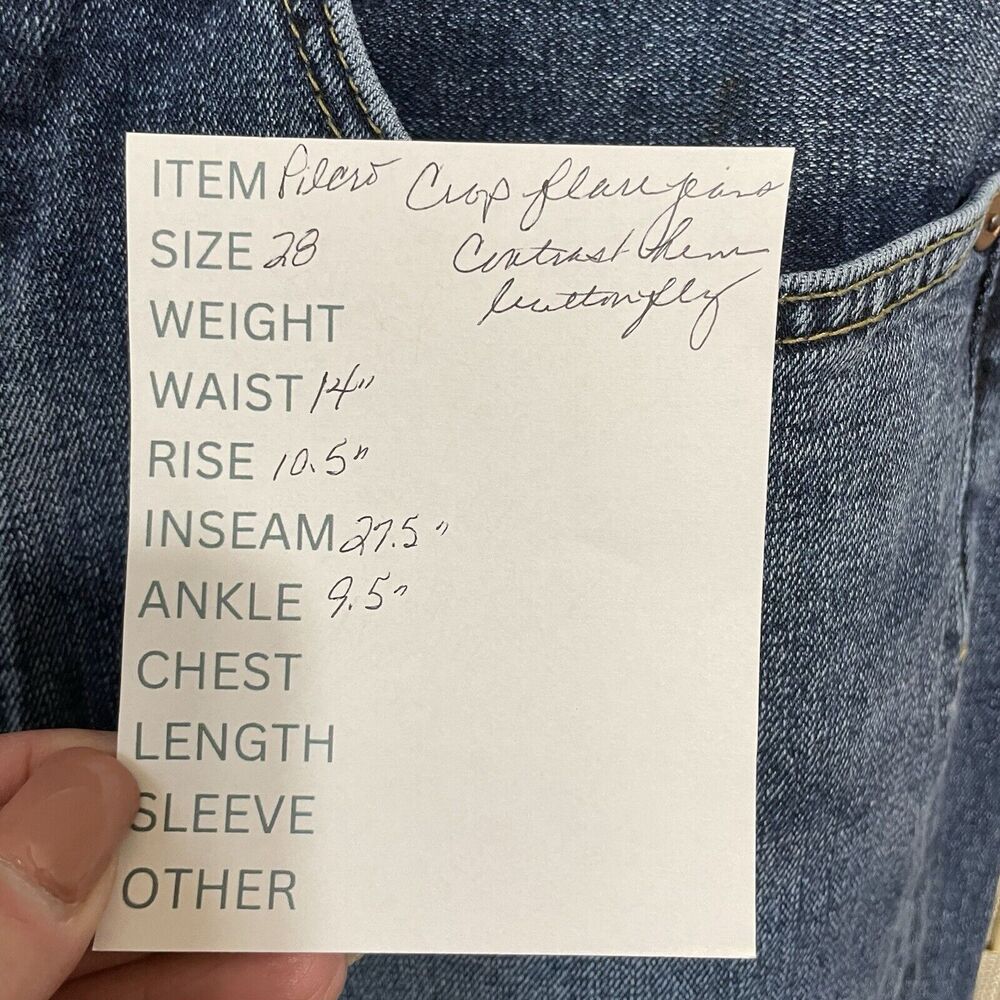 ITEM Pilcro Crop flare jeans
SIZE 28 Contrast hem
button fly
WEIGHT
WAIST 14"
RISE 10.5"
INSEAM 27.5"
ANKLE 9.5"
CHEST
LENGTH
SLEEVE
OTHER